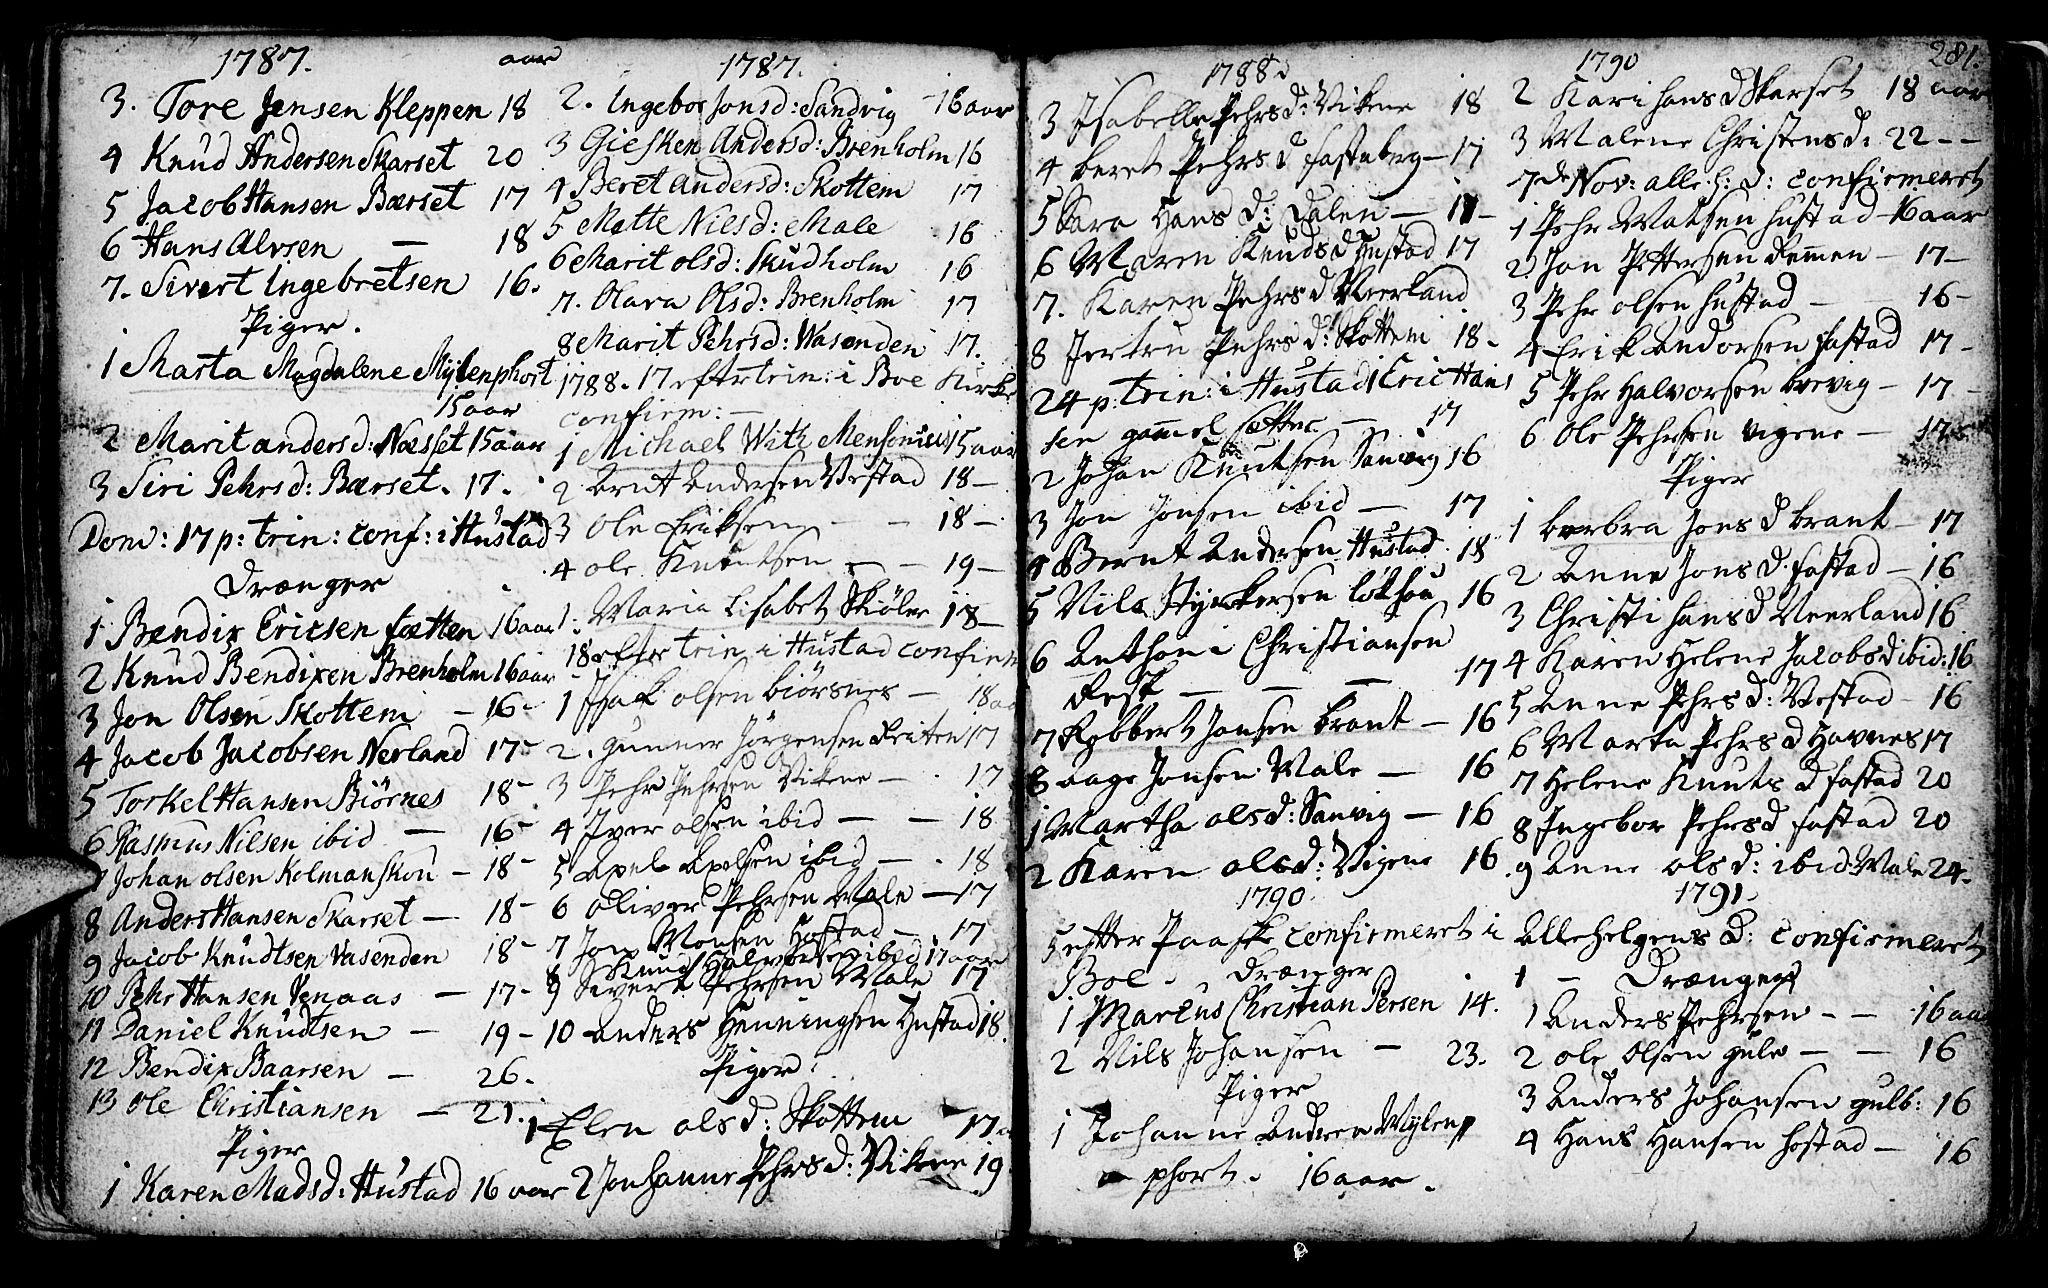 1787. aar
3. Tore Jensen Kleppen 18
4 Knud Andersen Skarset 20
5 Jacob Hansen Bærset 17
6 Hans Alvsen — 18
7. Sivert Ingebretsen 16.
Piger.
1 Marta Magdalene Mÿlenphort
15 aar
2 Marit anders d: Næsset 15 aar
3 Siri Pehrs d: Bærset. 17.
Dom: 17 p: trin: conf: i Hústad
Drænger
1 Bendix Ericsen fætten 16 aar
2 Knud Bendixen Brenholm 16 aar
3 Jon Olsen Skottem — 16-
4 Jacob Jacobsen Nerland 17-
5 Torkel Hansen Biörnes 18-
6 Rasmus Nilsen ibid — 16-
7 Johan olsen Kolmanskou — 18-
8 Anders Hansen Skarset — 18-
9 Jacob Knudtsen Vasenden 18-
10 Pehr Hansen Venaas — 17-
11 Daniel Knudtsen — 19-
12 Bendix Baarsen — 26.
13 Ole Christiansen — 21.
Piger
1 Karen Mads d: Hústad 16 aar
1787.
2. Ingebor Jons d: Sandvig - 16 aar
3 Giesken Anders d: Brenholm 16
4 Beret anders d: Skottem 17
5 Matte Nils d: Male 16
6 Marit ols d: Skudholm 16
7. Olava Ols d: Brenholm 17
8 Marit Pehrs d: Wasenden 17.
1788. 17 eftr trin: i Boe Kirke
confirm: —
1 Michael With Mensonius 15 aar
2 Arnt Andersen Vestad 18-
3 Ole Eriksen - - 18-
4 ole Knutsen - - 19-
1. Maria Lisabet Skiöler 18-
18 efter trin i Hústad confirm
1 Isak olsen biörsnes — 18 aa
2. gunner Jörgensen Friten 17
3 Pehr Pehrsen Vikene — 17
4 Iver olsen ibid — — 18
5 Axel Axelsen ibid — 18
6 Oliver Pehrsen Male — 17
7 Jon Monsen Hostad — 17
8 Knud Halvorsen ibid 17 aar
9 Sivert Pehrsen Male 17
10 Anders Henningsen Hustad 18.
Piger.
1 Elen ols d: Skottem 17 a
2 Johanne Pehrs d: Vikene 19
1788
3 Isabelle Pehrs d: Vikene 18
4 beret Pehrs d fastaberg — 17
5 Sara Hans d: Dalen — 17-
6 Maren Knuds d Hustad 17
7. Karen Pehrs d Neerland
8 Jertru Pehrs d: Skottem 18-
24 p: trin: i Hustad 1 Eric Hans
sen gamel sætter — 17
2 Johan Knutsen Sanvig 16
3 Jon Jonsen ibid — 17
4 Bernt Andersen Hústad 18
5 Nils Styrkersen lökhou 16
6 Anthoni Christiansen
Rest — — — 17
7 Robbert Jansen brant — 16
8 aage Jonsen Male — 16
1 Martha ols d: Sanvig — 16
2 Karen ols d: Vigene 16
1790.
5 efter Paaske confirmeret i
Boe. Drænger
1 Marcus Christian Persen 14.
2 Nils Johansen — 23.
Piger
1 Johanne Andrea Mylen
phort. 16 aar.
1790 281.
2 Kari hans d Skarset 18 aar
3 Malene Christens d: 22 - -
7de Nov: alle: h: d: confirmeret
1 Pehr Matsen hustad - 16 aar
2 Jon Pettersen Demen — 17-
3 Pehr olsen hústad — 16-
4 Erik Andorsen fastad 17-
5 Pehr Halvorsen brevig — 17-
6 Ole Pehrsen vigene — 17
Piger
1 barbra Jons d brant — 17
2 Anne Jons d. fastad — 16
3 Christi hans d Neerland 16
4 Karen Helene Jacobs d ibid: 16
5 Anne Pehrs d: Vestad — 16
6 Marta Pehrs d Havnes 17
7 Helene Knuts d fastad 20
8 Ingebor Pehrs d fastad 20
9 Anne ols d: ibid Male 24-
1791.
Allehelgens d: confirmeret
1 — Drænger
1 Anders Pehrsen - - 16 aa
2 ole Olsen gule — — 16
3 Anders Johansen gulb: 16
4 Hans Hansen hostad — 16